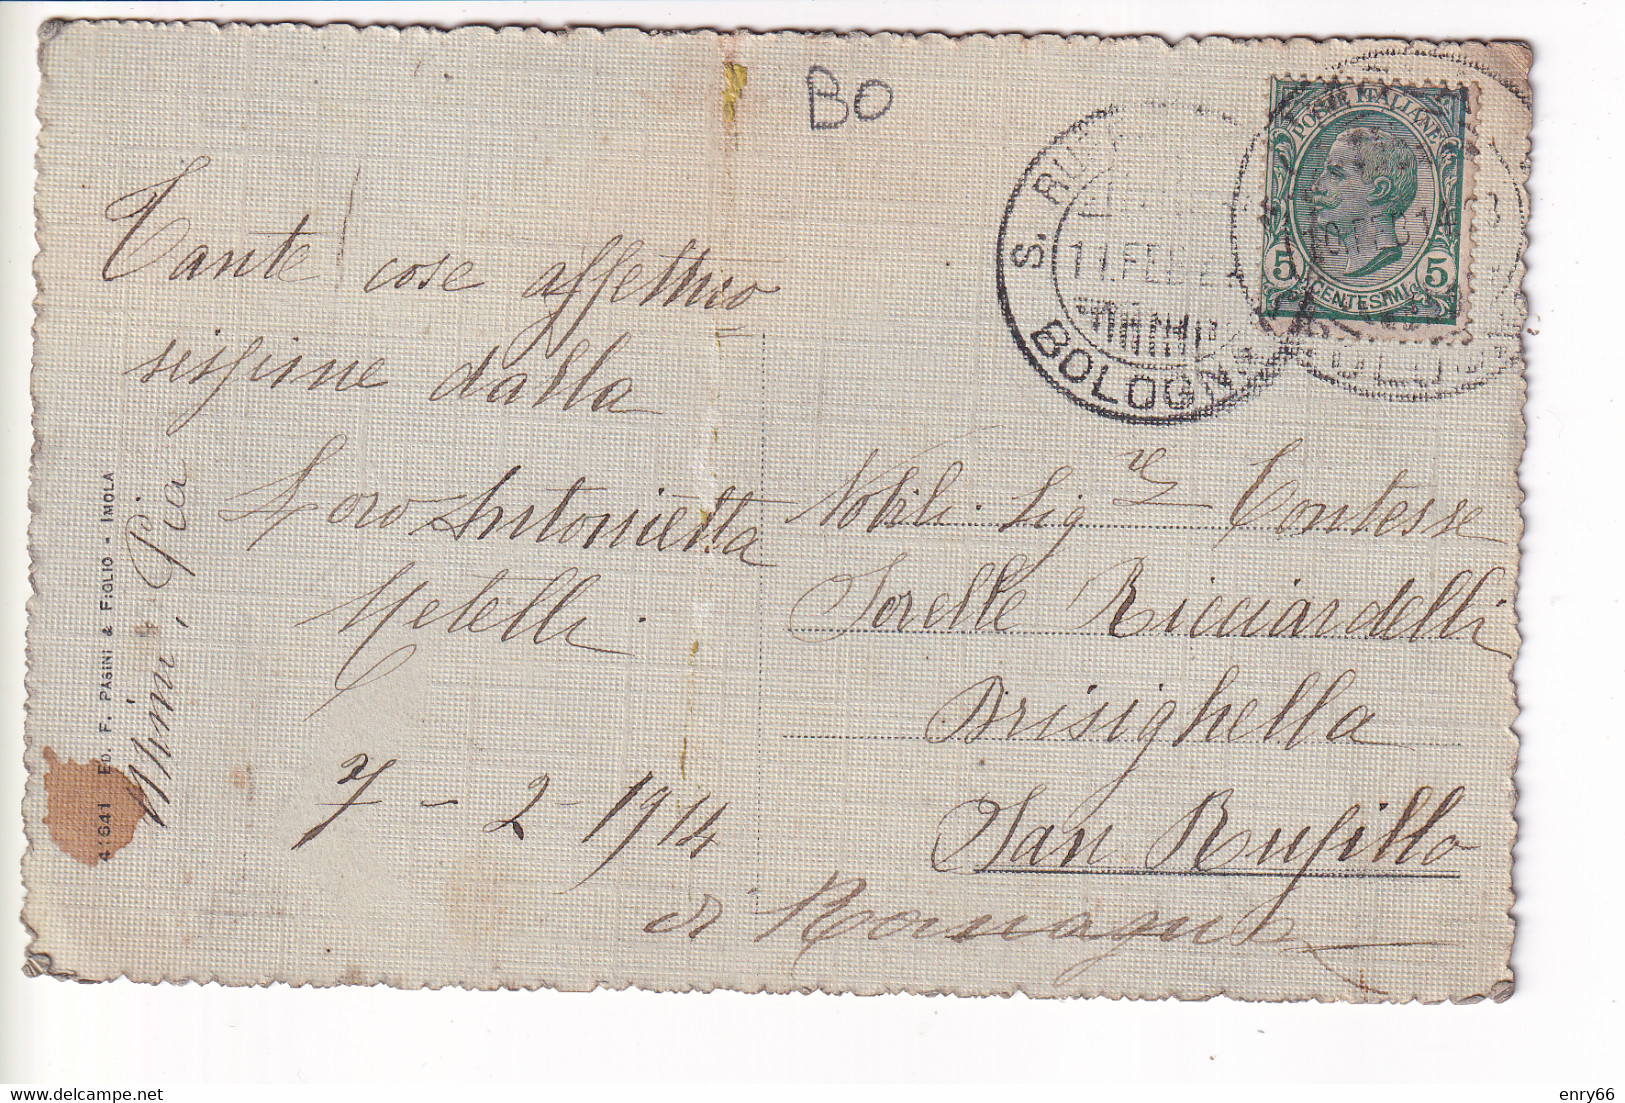 BO
POSTE ITALIANE
5 5
CENTESIMI
S. RUF
11. FEB
BOLOGNA
Tante cose affettuo=
sissime dalla
Loro Antonietta
Metelli.
7 - 2 - 1914
Mimi, Pia
41641 ED. F. PASINI & FIGLIO - IMOLA
Nobili Sig.re Contesse
Sorelle Ricciardelli
Brisighella
San Rufillo
di Romagna
enry66